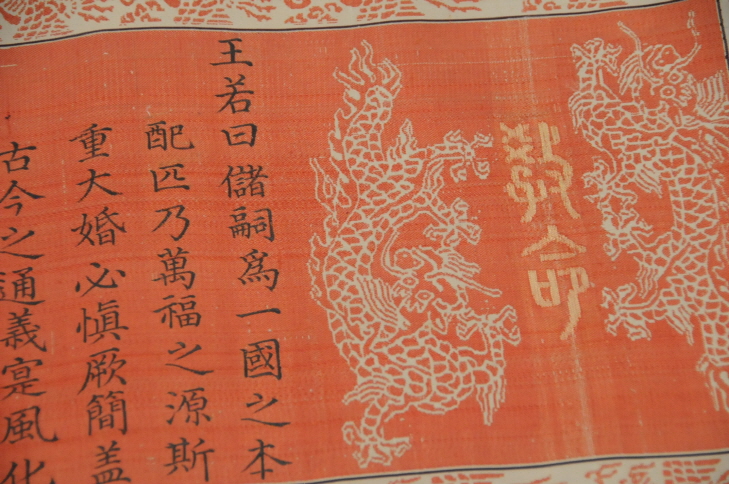 敎命
王若曰儲嗣爲一國之本
配匹乃萬福之源斯
重大婚必愼厥簡蓋
古今之通義寔風化